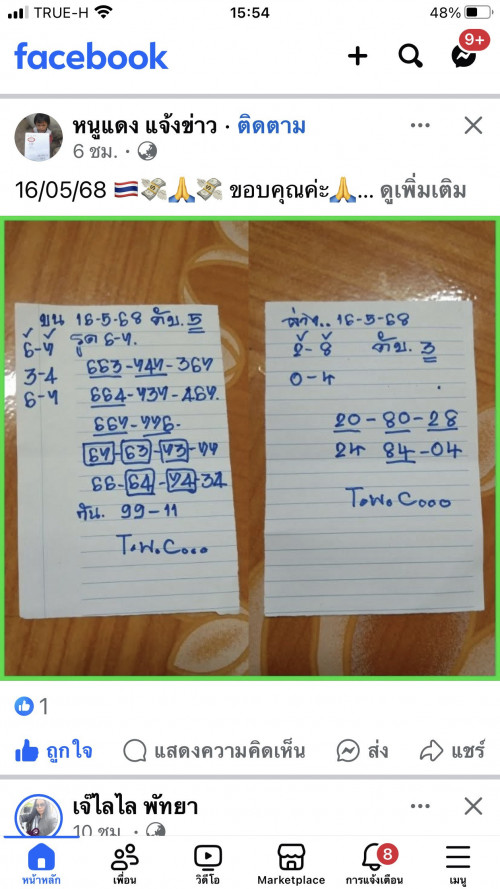 TRUE-H 15:54 48%
facebook 9+
หนูแดง แจ้งข่าว · ติดตาม
6 ชม. ·
16/05/68 🇹🇭💸🙏💸 ขอบคุณค่ะ🙏... ดูเพิ่มเติม
บน 16-5-68 ดับ. 5
6-7 รูด 6-7.
3-4 663-747-367
6-7 664-737-467.
667-776.
67-63-73-77
66-64-74-34
กัน. 99-11
T.W.Cooo
ล่าง.. 16-5-68
2-8 ดับ. 3
0-4
20-80-28
24 84-04
T.W.Cooo
1
ถูกใจ แสดงความคิดเห็น ส่ง แชร์
เจ๊ไลไล พัทยา
10 ชม. ·
หน้าหลัก เพื่อน วิดีโอ Marketplace 8 การแจ้งเตือน เมนู